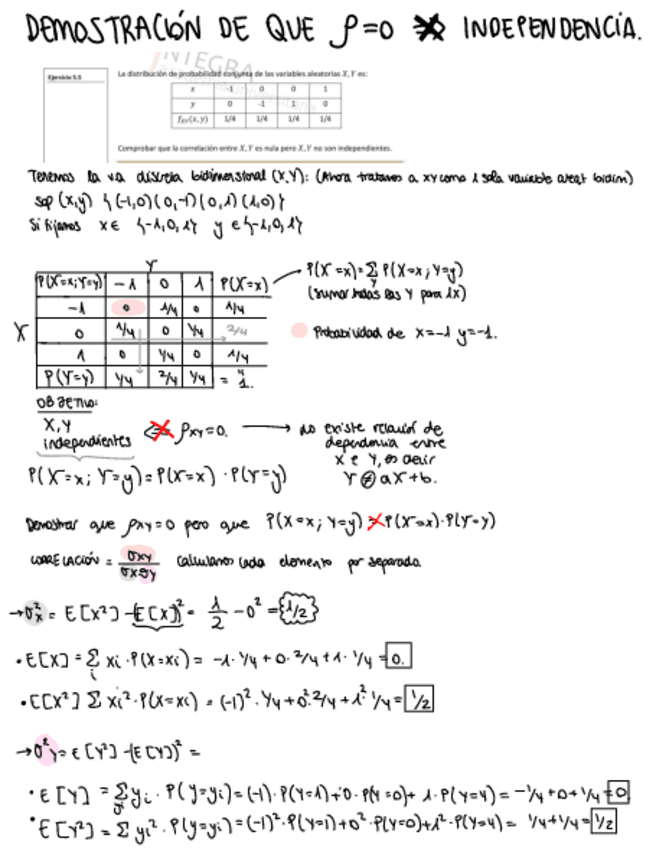 DEMOSTRACIÓN DE QUE ρ=0 ⇏ INDEPENDENCIA.
INTEGRA
Ejercicio 5.5
La distribución de probabilidad conjunta de las variables aleatorias X, Y es:
x -1 0 0 1
y 0 -1 1 0
fXY(x,y) 1/4 1/4 1/4 1/4
Comprobar que la correlación entre X, Y es nula pero X, Y no son independientes.
Tenemos la va discreta bidimensional (X,Y): (Ahora tratamos a xy como 1 sola variable aleat bidim)
sop (x,y) {(-1,0)(0,-1)(0,1)(1,0)}
Si fijamos x∈ {-1,0,1} y ∈{-1,0,1}
Y
P(X=x;Y=y) -1 0 1 P(X=x)
-1 0 1/4 0 1/4
X 0 1/4 0 1/4 2/4
1 0 1/4 0 1/4
P(Y=y) 1/4 2/4 1/4 = 1.
P(X=x)=Σy P(X=x; Y=y)
(sumar todas las Y para 1X)
Probabilidad de x=-1 y=-1.
OBJETIVO:
X,Y independientes ⇎ ρxy=0. → no existe relación de
dependencia entre
X e Y, es decir
Y≠aX+b.
P(X=x; Y=y)=P(X=x) · P(Y=y)
Demostrar que ρxy=0 pero que P(X=x; Y=y) ≠ P(X=x)·P(Y=y)
CORRELACIÓN = σxy/σxσy calculamos cada elemento por separado.
→σ²x = E[X²]-(E[X])² = 1/2 - 0² = 1/2
• E[X] = Σi xi·P(X=xi) = -1·1/4+0·2/4+1·1/4 = 0.
• E[X²] Σ xi²·P(X=xi) = (-1)²·1/4+0²·2/4+1²·1/4 = 1/2
→σ²y = E[Y²]-(E[Y])² =
• E[Y] = Σyi yi · P(y=yi) = (-1)·P(Y=1)+0·P(Y=0)+ 1·P(Y=4) = -1/4+0+1/4 = 0
• E[Y²] = Σ yi²·P(y=yi) = (-1)²·P(Y=1)+0²·P(Y=0)+1²·P(Y=4) = 1/4+1/4 = 1/2